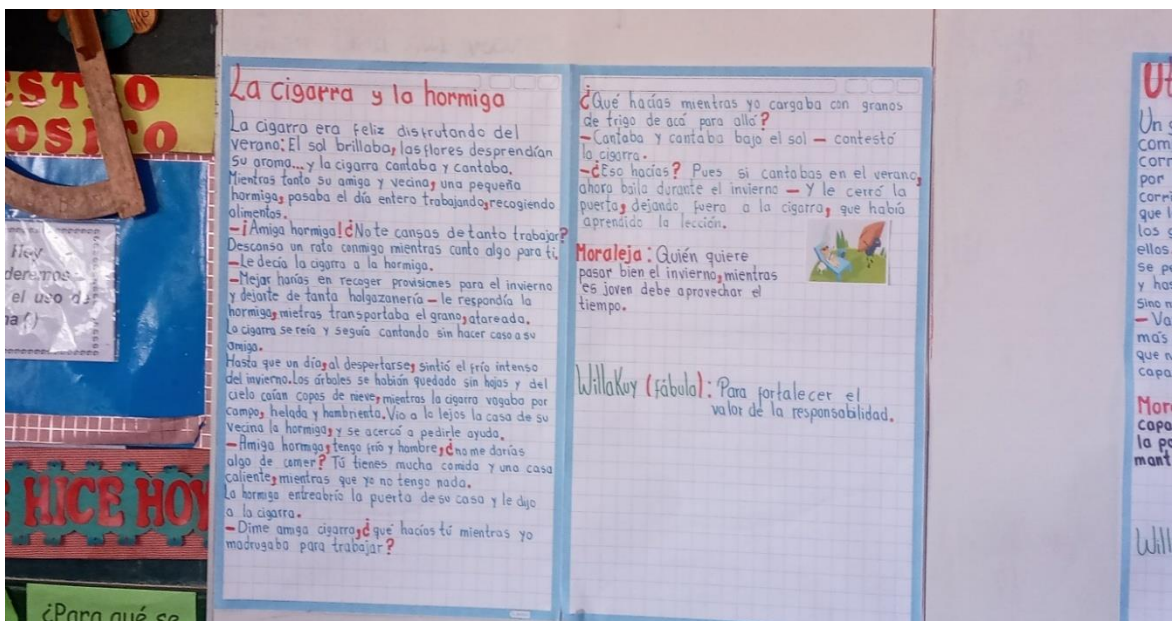 STRO
OSITO
Hoy
deremos
el uso de
HICE HOY
¿Para qué se
La cigarra y la hormiga
La cigarra era feliz disfrutando del
verano: El sol brillaba, las flores desprendían
su aroma... y la cigarra cantaba y cantaba.
Mientras tanto su amiga y vecina, una pequeña
hormiga, pasaba el día entero trabajando, recogiendo
alimentos.
— ¡Amiga hormiga! ¿No te cansas de tanto trabajar?
Descansa un rato conmigo mientras canto algo para ti,
— Le decía la cigarra a la hormiga.
— Mejor harías en recoger provisiones para el invierno
y dejarte de tanta holgazanería — le respondía la
hormiga, mietras transportaba el grano, atareada.
La cigarra se reía y seguía cantando sin hacer caso a su
amiga.
Hasta que un día, al despertarse, sintió el frío intenso
del invierno. Los árboles se habían quedado sin hojas y del
cielo caían copos de nieve, mientras la cigarra vagaba por
campo, helada y hambrienta. Vio a lo lejos la casa de su
vecina la hormiga, y se acercó a pedirle ayuda.
— Amiga hormiga, tengo frío y hambre, ¿no me darías
algo de comer? Tú tienes mucha comida y una casa
caliente, mientras que yo no tengo nada.
La hormiga entreabrió la puerta de su casa y le dijo
a la cigarra.
— Dime amiga cigarra, ¿qué hacías tú mientras yo
madrugaba para trabajar?
¿Qué hacías mientras yo cargaba con granos
de trigo de acá para allá?
— Cantaba y cantaba bajo el sol — contestó
la cigarra.
— ¿Eso hacías? Pues si cantabas en el verano,
ahora baila durante el invierno — Y le cerró la
puerta, dejando fuera a la cigarra, que había
aprendido la lección.
Moraleja: Quién quiere
pasar bien el invierno, mientras
es joven debe aprovechar el
tiempo.
WillaKuy (fábula): Para fortalecer el
valor de la responsabilidad.
Un
com
corr
por
corri
que
los
ellos
se p
y ha
Sino n
— Va
más
que n
capa
Mor
capa
la po
mant
Will